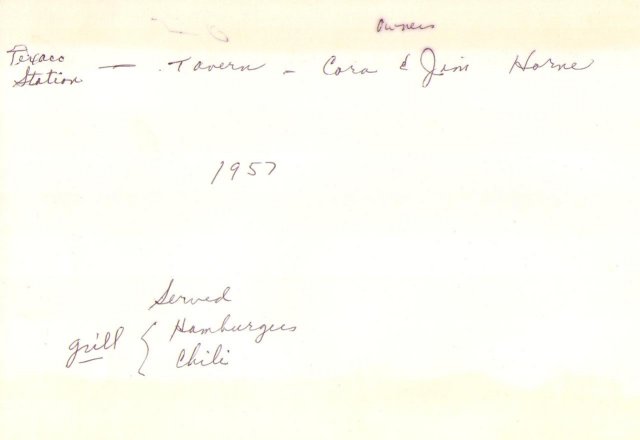 Owners
Texaco
Station — Tavern - Cora & Jim Horne
1957
Served
grill { Hamburgers
Chili